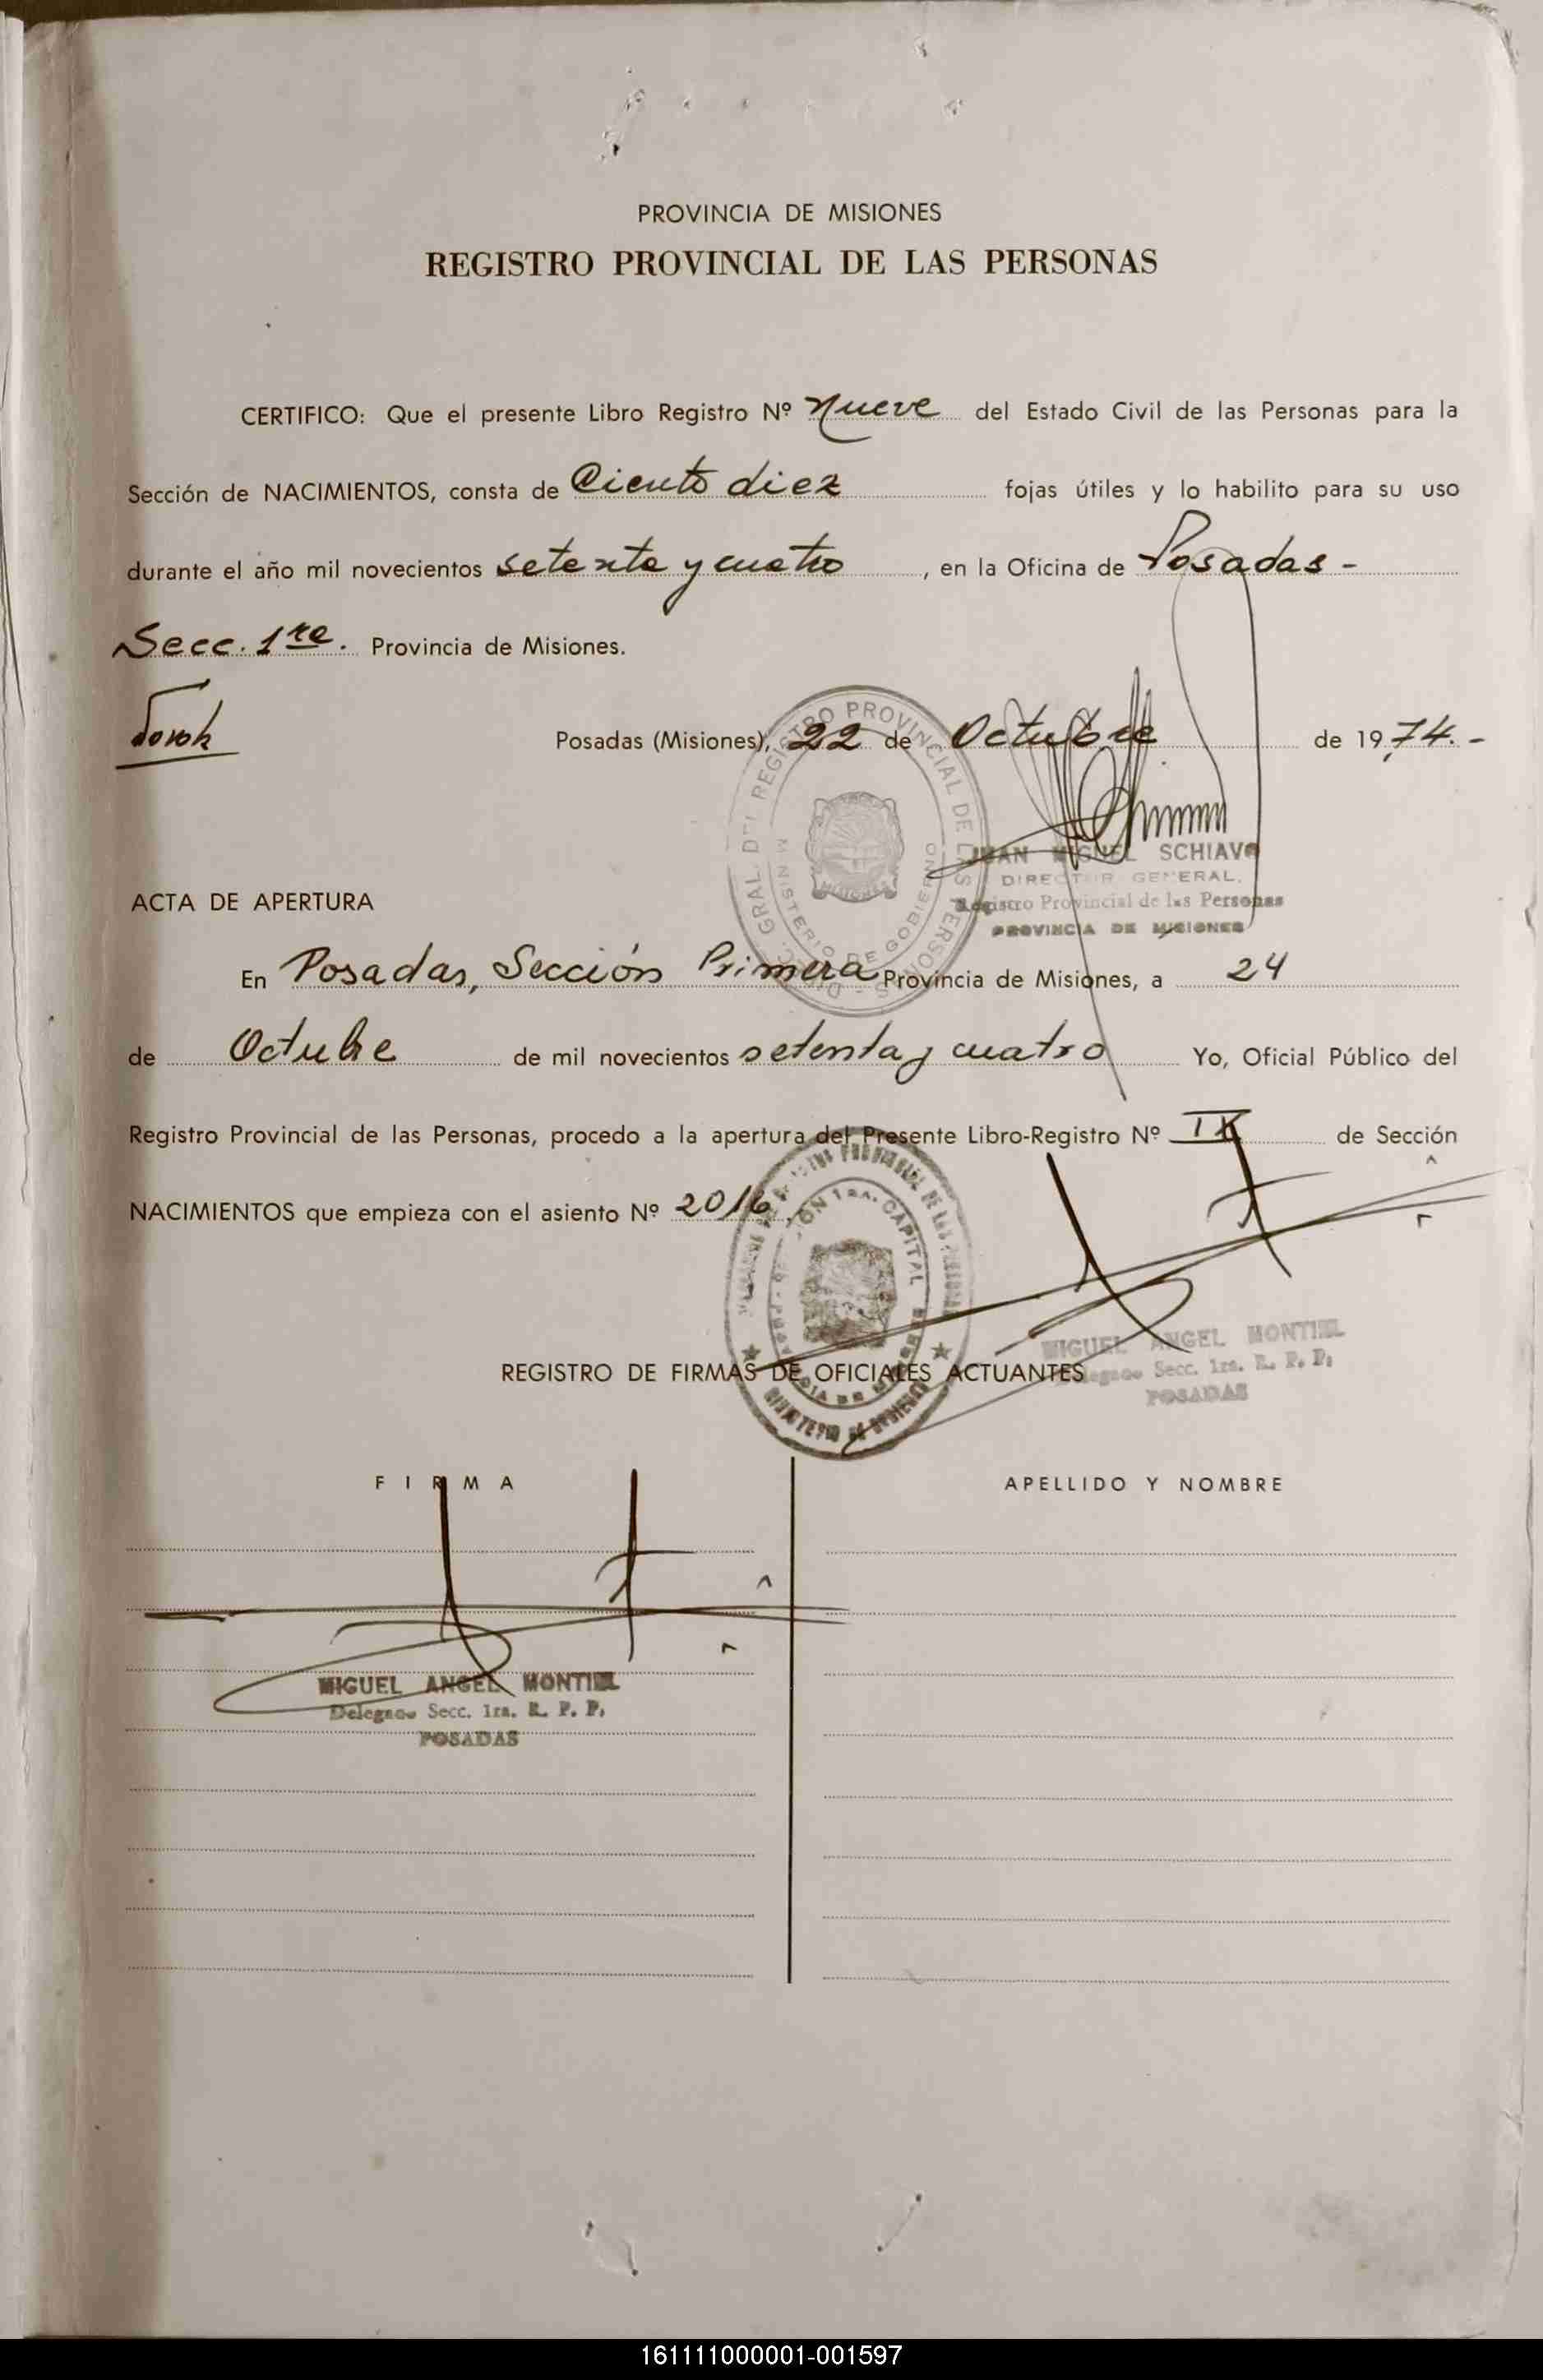 PROVINCIA DE MISIONES
REGISTRO PROVINCIAL DE LAS PERSONAS
CERTIFICO: Que el presente Libro Registro Nº Nueve del Estado Civil de las Personas para la
Sección de NACIMIENTOS, consta de Ciento diez fojas útiles y lo habilito para su uso
durante el año mil novecientos setenta y cuatro, en la Oficina de Posadas -
Secc. 1ra. Provincia de Misiones.
Posadas (Misiones), 22 de Octubre de 1974.-
JUAN MIGUEL SCHIAVO
DIRECTOR GENERAL
Registro Provincial de las Personas
PROVINCIA DE MISIONES
ACTA DE APERTURA
En Posadas, Sección Primera Provincia de Misiones, a 24
de Octubre de mil novecientos setenta y cuatro Yo, Oficial Público del
Registro Provincial de las Personas, procedo a la apertura del Presente Libro-Registro Nº IX de Sección
NACIMIENTOS que empieza con el asiento Nº 2016
MIGUEL ANGEL MONTIEL
Delegado Secc. 1ra. R. P. P.
POSADAS
REGISTRO DE FIRMAS DE OFICIALES ACTUANTES
FIRMA APELLIDO Y NOMBRE
MIGUEL ANGEL MONTIEL
Delegado Secc. 1ra. R. P. P.
POSADAS
161111000001-001597